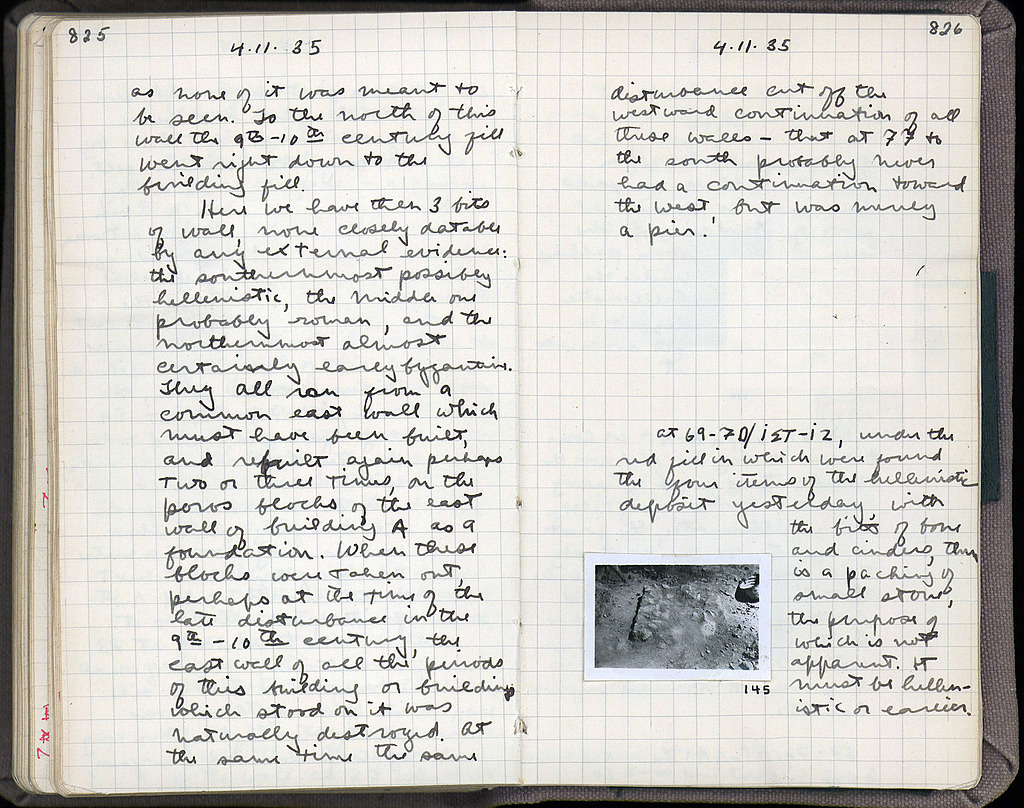 825
4.11.35
as none of it was meant to
be seen. To the north of this
wall the 9th-10th century fill
went right down to the
building fill.
Here we have then 3 bits
of wall, none closely datable
by any external evidence:
the southernmost possibly
hellenistic, the middle one
probably roman, and the
northernmost almost
certainly early byzantine.
They all ran from a
common east wall which
must have been built,
and rebuilt again perhaps
two or three times, on the
poros blocks of the east
wall of building A as a
foundation. When these
blocks were taken out,
perhaps at the time of the
late disturbance in the
9th-10th century, the
east wall of all the periods
of this building or buildings
which stood on it was
naturally destroyed. At
the same time the same
826
4.11.35
disturbance cut off the
westward continuation of all
these walls - that at 77 to
the south probably never
had a continuation toward
the west, but was merely
a pier.
at 69-70/, under the
red fill in which were found
the four items of the hellenistic
deposit yesterday, with
the bits of bone
and cinders, there
is a packing of
small stone,
the purpose of
which is not
apparent. It
must be hellen-
istic or earlier.
145